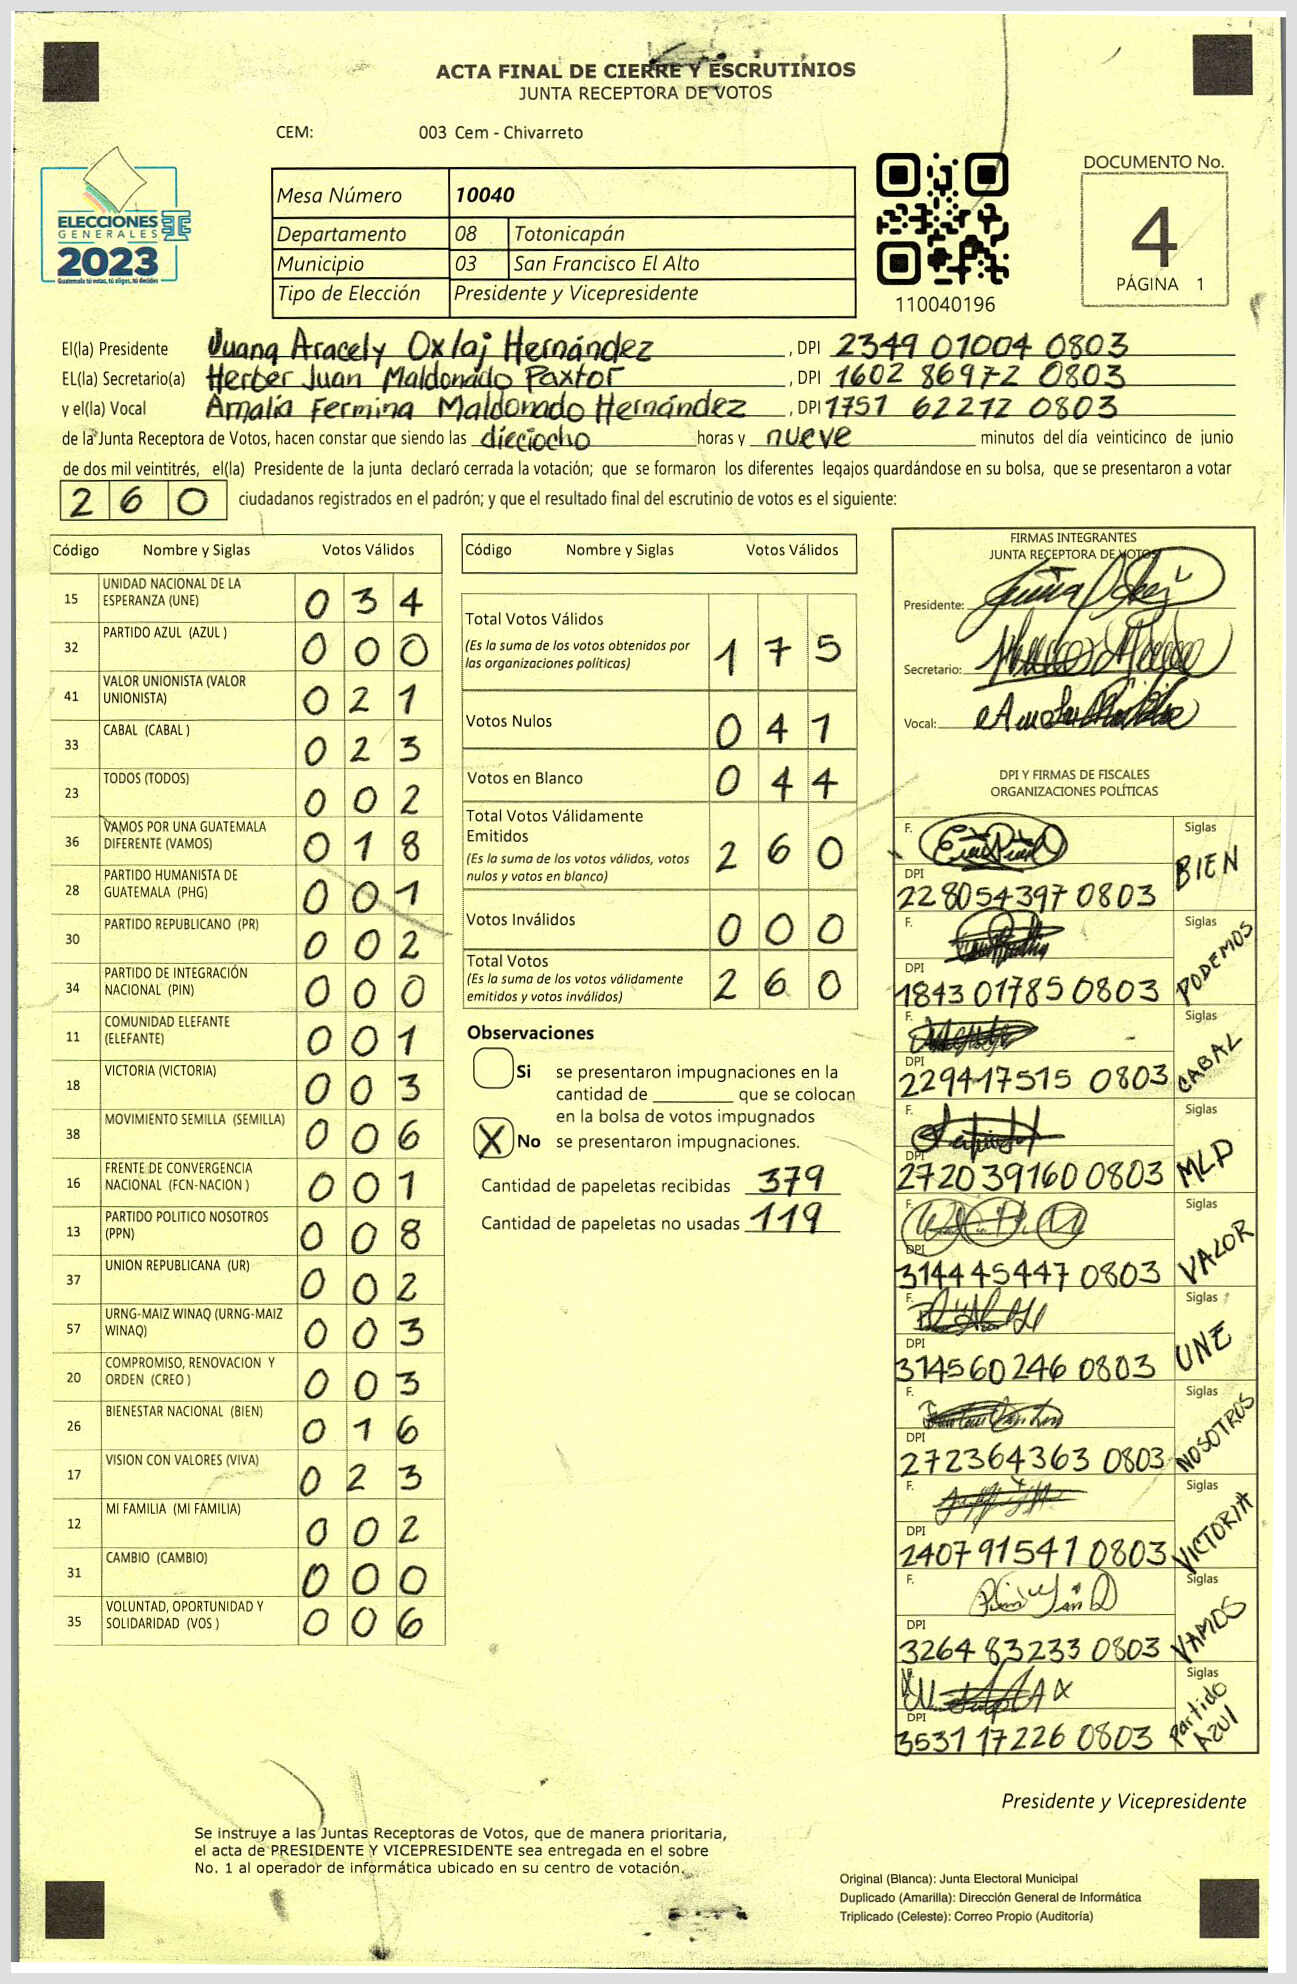 ACTA FINAL DE CIERRE Y ESCRUTINIOS
JUNTA RECEPTORA DE VOTOS
CEM: 003 Cem - Chivarreto
ELECCIONES
GENERALES
2023
Guatemala tú votas, tú eliges, tú decides
Mesa Número 10040
Departamento 08 Totonicapán
Municipio 03 San Francisco El Alto
Tipo de Elección Presidente y Vicepresidente
110040196
DOCUMENTO No.
4
PÁGINA 1
El(la) Presidente Juana Aracely Oxlaj Hernández, DPI 2349 01004 0803
EL(la) Secretario(a) Herber Juan Maldonado Paxtor, DPI 1602 86972 0803
y el(la) Vocal Amalia Fermina Maldonado Hernández, DPI 1751 62212 0803
de la Junta Receptora de Votos, hacen constar que siendo las dieciocho horas y nueve minutos del día veinticinco de junio
de dos mil veintitrés, el(la) Presidente de la junta declaró cerrada la votación; que se formaron los diferentes legajos guardándose en su bolsa, que se presentaron a votar
260 ciudadanos registrados en el padrón; y que el resultado final del escrutinio de votos es el siguiente:
Código Nombre y Siglas Votos Válidos
15 UNIDAD NACIONAL DE LA ESPERANZA (UNE) 034
32 PARTIDO AZUL (AZUL ) 000
41 VALOR UNIONISTA (VALOR UNIONISTA) 021
33 CABAL (CABAL ) 023
23 TODOS (TODOS) 002
36 VAMOS POR UNA GUATEMALA DIFERENTE (VAMOS) 018
28 PARTIDO HUMANISTA DE GUATEMALA (PHG) 001
30 PARTIDO REPUBLICANO (PR) 002
34 PARTIDO DE INTEGRACIÓN NACIONAL (PIN) 000
11 COMUNIDAD ELEFANTE (ELEFANTE) 001
18 VICTORIA (VICTORIA) 003
38 MOVIMIENTO SEMILLA (SEMILLA) 006
16 FRENTE DE CONVERGENCIA NACIONAL (FCN-NACION ) 001
13 PARTIDO POLITICO NOSOTROS (PPN) 008
37 UNION REPUBLICANA (UR) 002
57 URNG-MAIZ WINAQ (URNG-MAIZ WINAQ) 003
20 COMPROMISO, RENOVACION Y ORDEN (CREO ) 003
26 BIENESTAR NACIONAL (BIEN) 016
17 VISION CON VALORES (VIVA) 023
12 MI FAMILIA (MI FAMILIA) 002
31 CAMBIO (CAMBIO) 000
35 VOLUNTAD, OPORTUNIDAD Y SOLIDARIDAD (VOS ) 006
Código Nombre y Siglas Votos Válidos
Total Votos Válidos 175
(Es la suma de los votos obtenidos por
las organizaciones políticas)
Votos Nulos 041
Votos en Blanco 044
Total Votos Válidamente
Emitidos 260
(Es la suma de los votos válidos, votos
nulos y votos en blanco)
Votos Inválidos 000
Total Votos 260
(Es la suma de los votos válidamente
emitidos y votos inválidos)
Observaciones
Si se presentaron impugnaciones en la
cantidad de ________ que se colocan
en la bolsa de votos impugnados
X No se presentaron impugnaciones.
Cantidad de papeletas recibidas 379
Cantidad de papeletas no usadas 119
FIRMAS INTEGRANTES
JUNTA RECEPTORA DE VOTOS
Presidente:
Secretario:
Vocal:
DPI Y FIRMAS DE FISCALES
ORGANIZACIONES POLÍTICAS
F. Siglas BIEN
DPI 228054397 0803
F. Siglas PODEMOS
DPI 1843 01785 0803
F. Siglas CABAL
DPI 229417515 0803
F. Siglas MLP
DPI 2720 39160 0803
F. Siglas VALOR
DPI 314445447 0803
F. Siglas UNE
DPI 314560246 0803
F. Siglas NOSOTROS
DPI 272364363 0803
F. Siglas VICTORIA
DPI 2407 91541 0803
F. Siglas VAMOS
DPI 3264 83233 0803
Siglas Partido AZUl
DPI 3531 17226 0803
Presidente y Vicepresidente
Se instruye a las Juntas Receptoras de Votos, que de manera prioritaria,
el acta de PRESIDENTE Y VICEPRESIDENTE sea entregada en el sobre
No. 1 al operador de informática ubicado en su centro de votación.
Original (Blanca): Junta Electoral Municipal
Duplicado (Amarilla): Dirección General de Informática
Triplicado (Celeste): Correo Propio (Auditoría)